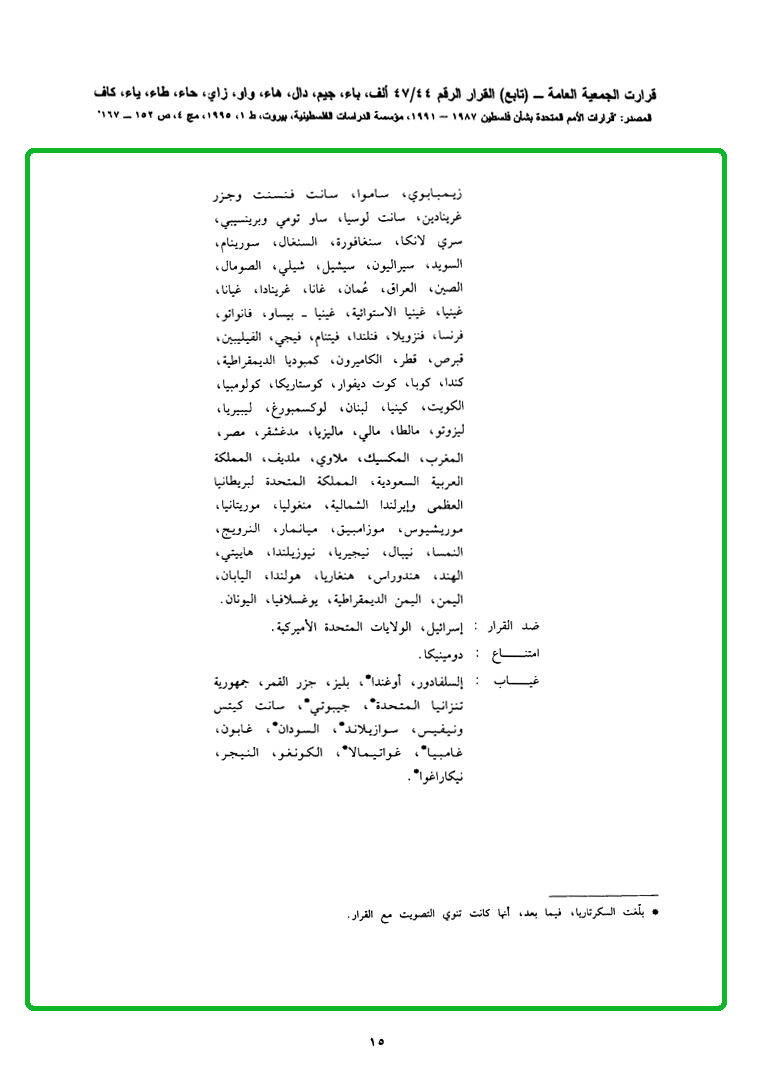 قرارت الجمعية العامة ــ (تابع) القرار الرقم ٤٧/٤٤ ألف، باء، جيم، دال، هاء، واو، زاي، حاء، طاء، ياء، كاف
المصدر: "قرارات الأمم المتحدة بشأن فلسطين ١٩٨٧ – ١٩٩١، مؤسسة الدراسات الفلسطينية، بيروت، ط ١، ١٩٩٥، مج ٤، ص ١٥٢ ــ ١٦٧"
زيمبابوي، ساموا، سانت فنسنت وجزر
غرينادين، سانت لوسيا، ساو تومي وبرينسيبي،
سري لانكا، سنغافورة، السنغال، سورينام،
السويد، سيراليون، سيشيل، شيلي، الصومال،
الصين، العراق، عُمان، غانا، غرينادا، غيانا،
غينيا، غينيا الاستوائية، غينيا ـ بيساو، فانواتو،
فرنسا، فنزويلا، فنلندا، فيتنام، فيجي، الفيليبين،
قبرص، قطر، الكاميرون، كمبوديا الديمقراطية،
كندا، كوبا، كوت ديفوار، كوستاريكا، كولومبيا،
الكويت، كينيا، لبنان، لوكسمبورغ، ليبيريا،
ليزوتو، مالطا، مالي، ماليزيا، مدغشقر، مصر،
المغرب، المكسيك، ملاوي، ملديف، المملكة
العربية السعودية، المملكة المتحدة لبريطانيا
العظمى وإيرلندا الشمالية، منغوليا، موريتانيا،
موريشيوس، موزامبيق، ميانمار، النرويج،
النمسا، نيبال، نيجيريا، نيوزيلندا، هاييتي،
الهند، هندوراس، هنغاريا، هولندا، اليابان،
اليمن، اليمن الديمقراطية، يوغسلافيا، اليونان.
ضد القرار : إسرائيل، الولايات المتحدة الأميركية.
امتنـــــاع : دومينيكا.
غيـــــاب : إلسلفادور، أوغندا•، بليز، جزر القمر، جمهورية
تنزانيا المتحدة•، جيبوتي•، سانت كيتس
ونيفيس، سوازيلاند•، السودان•، غابون،
غامبيا•، غواتيمالا•، الكونغو، النيجر،
نيكاراغوا•.
• بلّغت السكرتاريا، فيما بعد، أنها كانت تنوي التصويت مع القرار.
١٥